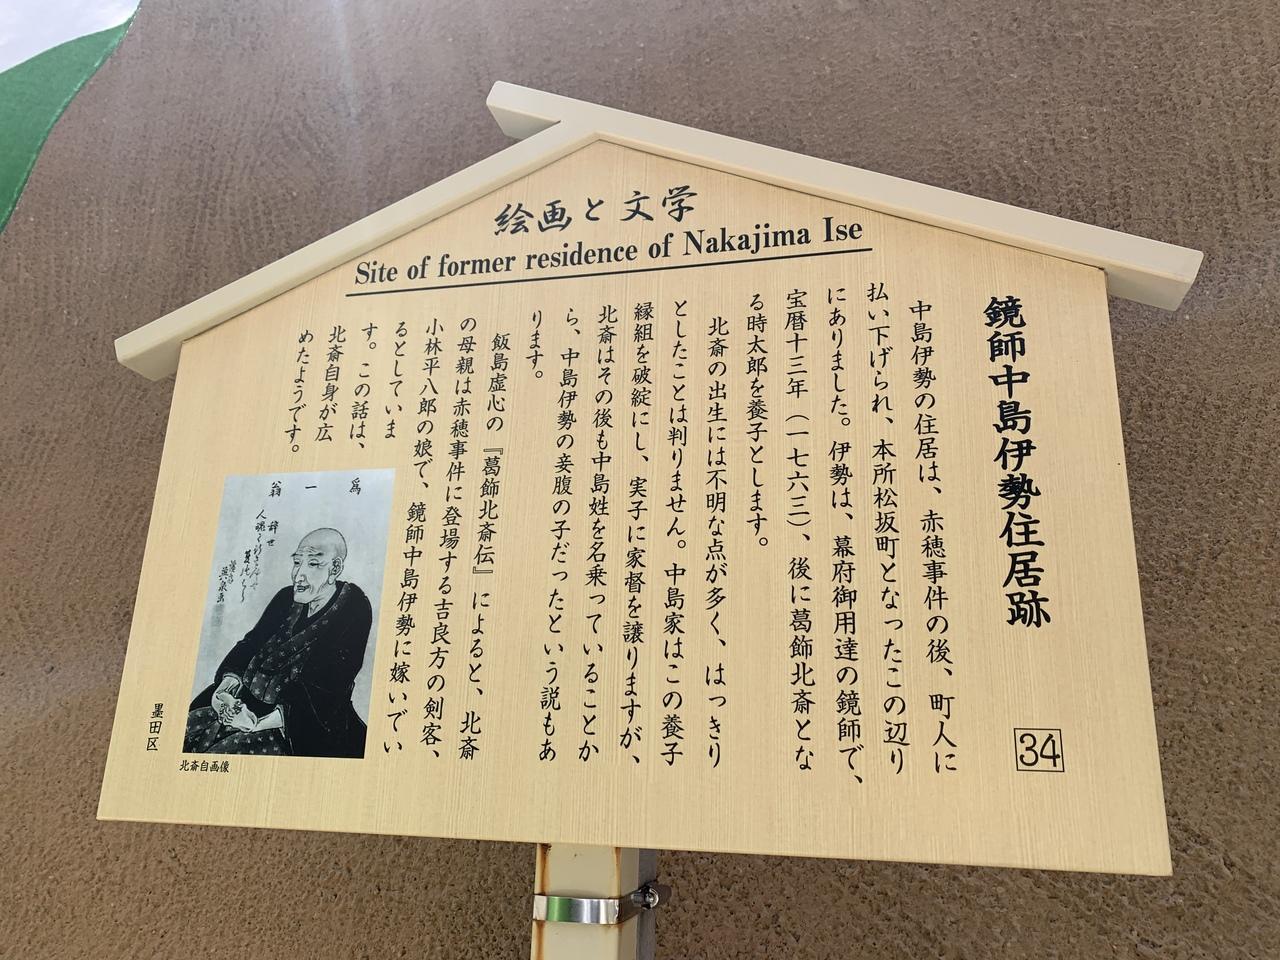 絵画と文学
Site of former residence of Nakajima Ise
鏡師中島伊勢住居跡
34
中島伊勢の住居は、赤穂事件の後、町人に
払い下げられ、本所松坂町となったこの辺り
にありました。伊勢は、幕府御用達の鏡師で、
宝暦十三年（一七六三）、後に葛飾北斎とな
る時太郎を養子とします。
北斎の出生には不明な点が多く、はっきり
としたことは判りません。中島家はこの養子
縁組を破綻にし、実子に家督を譲りますが、
北斎はその後も中島姓を名乗っていることか
ら、中島伊勢の妾腹の子だったという説もあ
ります。
飯島虚心の『葛飾北斎伝』によると、北斎
の母親は赤穂事件に登場する吉良方の剣客、
小林平八郎の娘で、鏡師中島伊勢に嫁いでい
るとしていま
す。この話は、
北斎自身が広
めたようです。
爲一翁
辞世
北斎自画像
墨田区